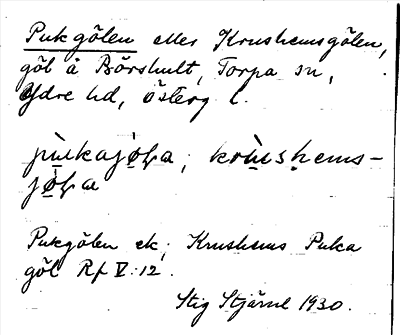 Pukgölen eller Krushemsgölen,
göl å Börshult, Torpa sn,
Ydre hd, Österg l.
pùkajo̱ɫa, krùshems-
jo̱ɫa
Pukgölen ek; Krushems Puka
göl Rf V:12.
Stig Stjärne 1930.